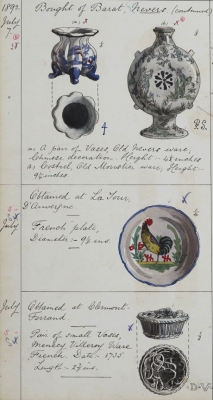 1892 Bought of Barat, Nevers (continued)
July
7.
a. x
a. x
4
P.S.
a. A pair of Vases, Old Nevers ware,
Chinese decoration. Height - 4 8 inches
a. Costrel, Old Moustier ware, Height-
9½ inches
Obtained at La Tour,
D'Auvergne
July
French plate,
Diameter - 9½ ins.
July
Obtained at Clermont-
Ferrand
Pair of small Vases,
Mennecy Villeroy Ware
French. Date. 1735.
Length. - 2½ ins.
D.V.